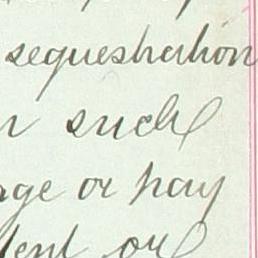 sequestration
such
age or pay
dent or